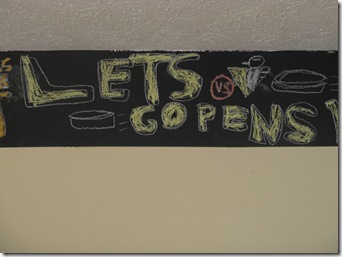 LETS VS
GO PENS